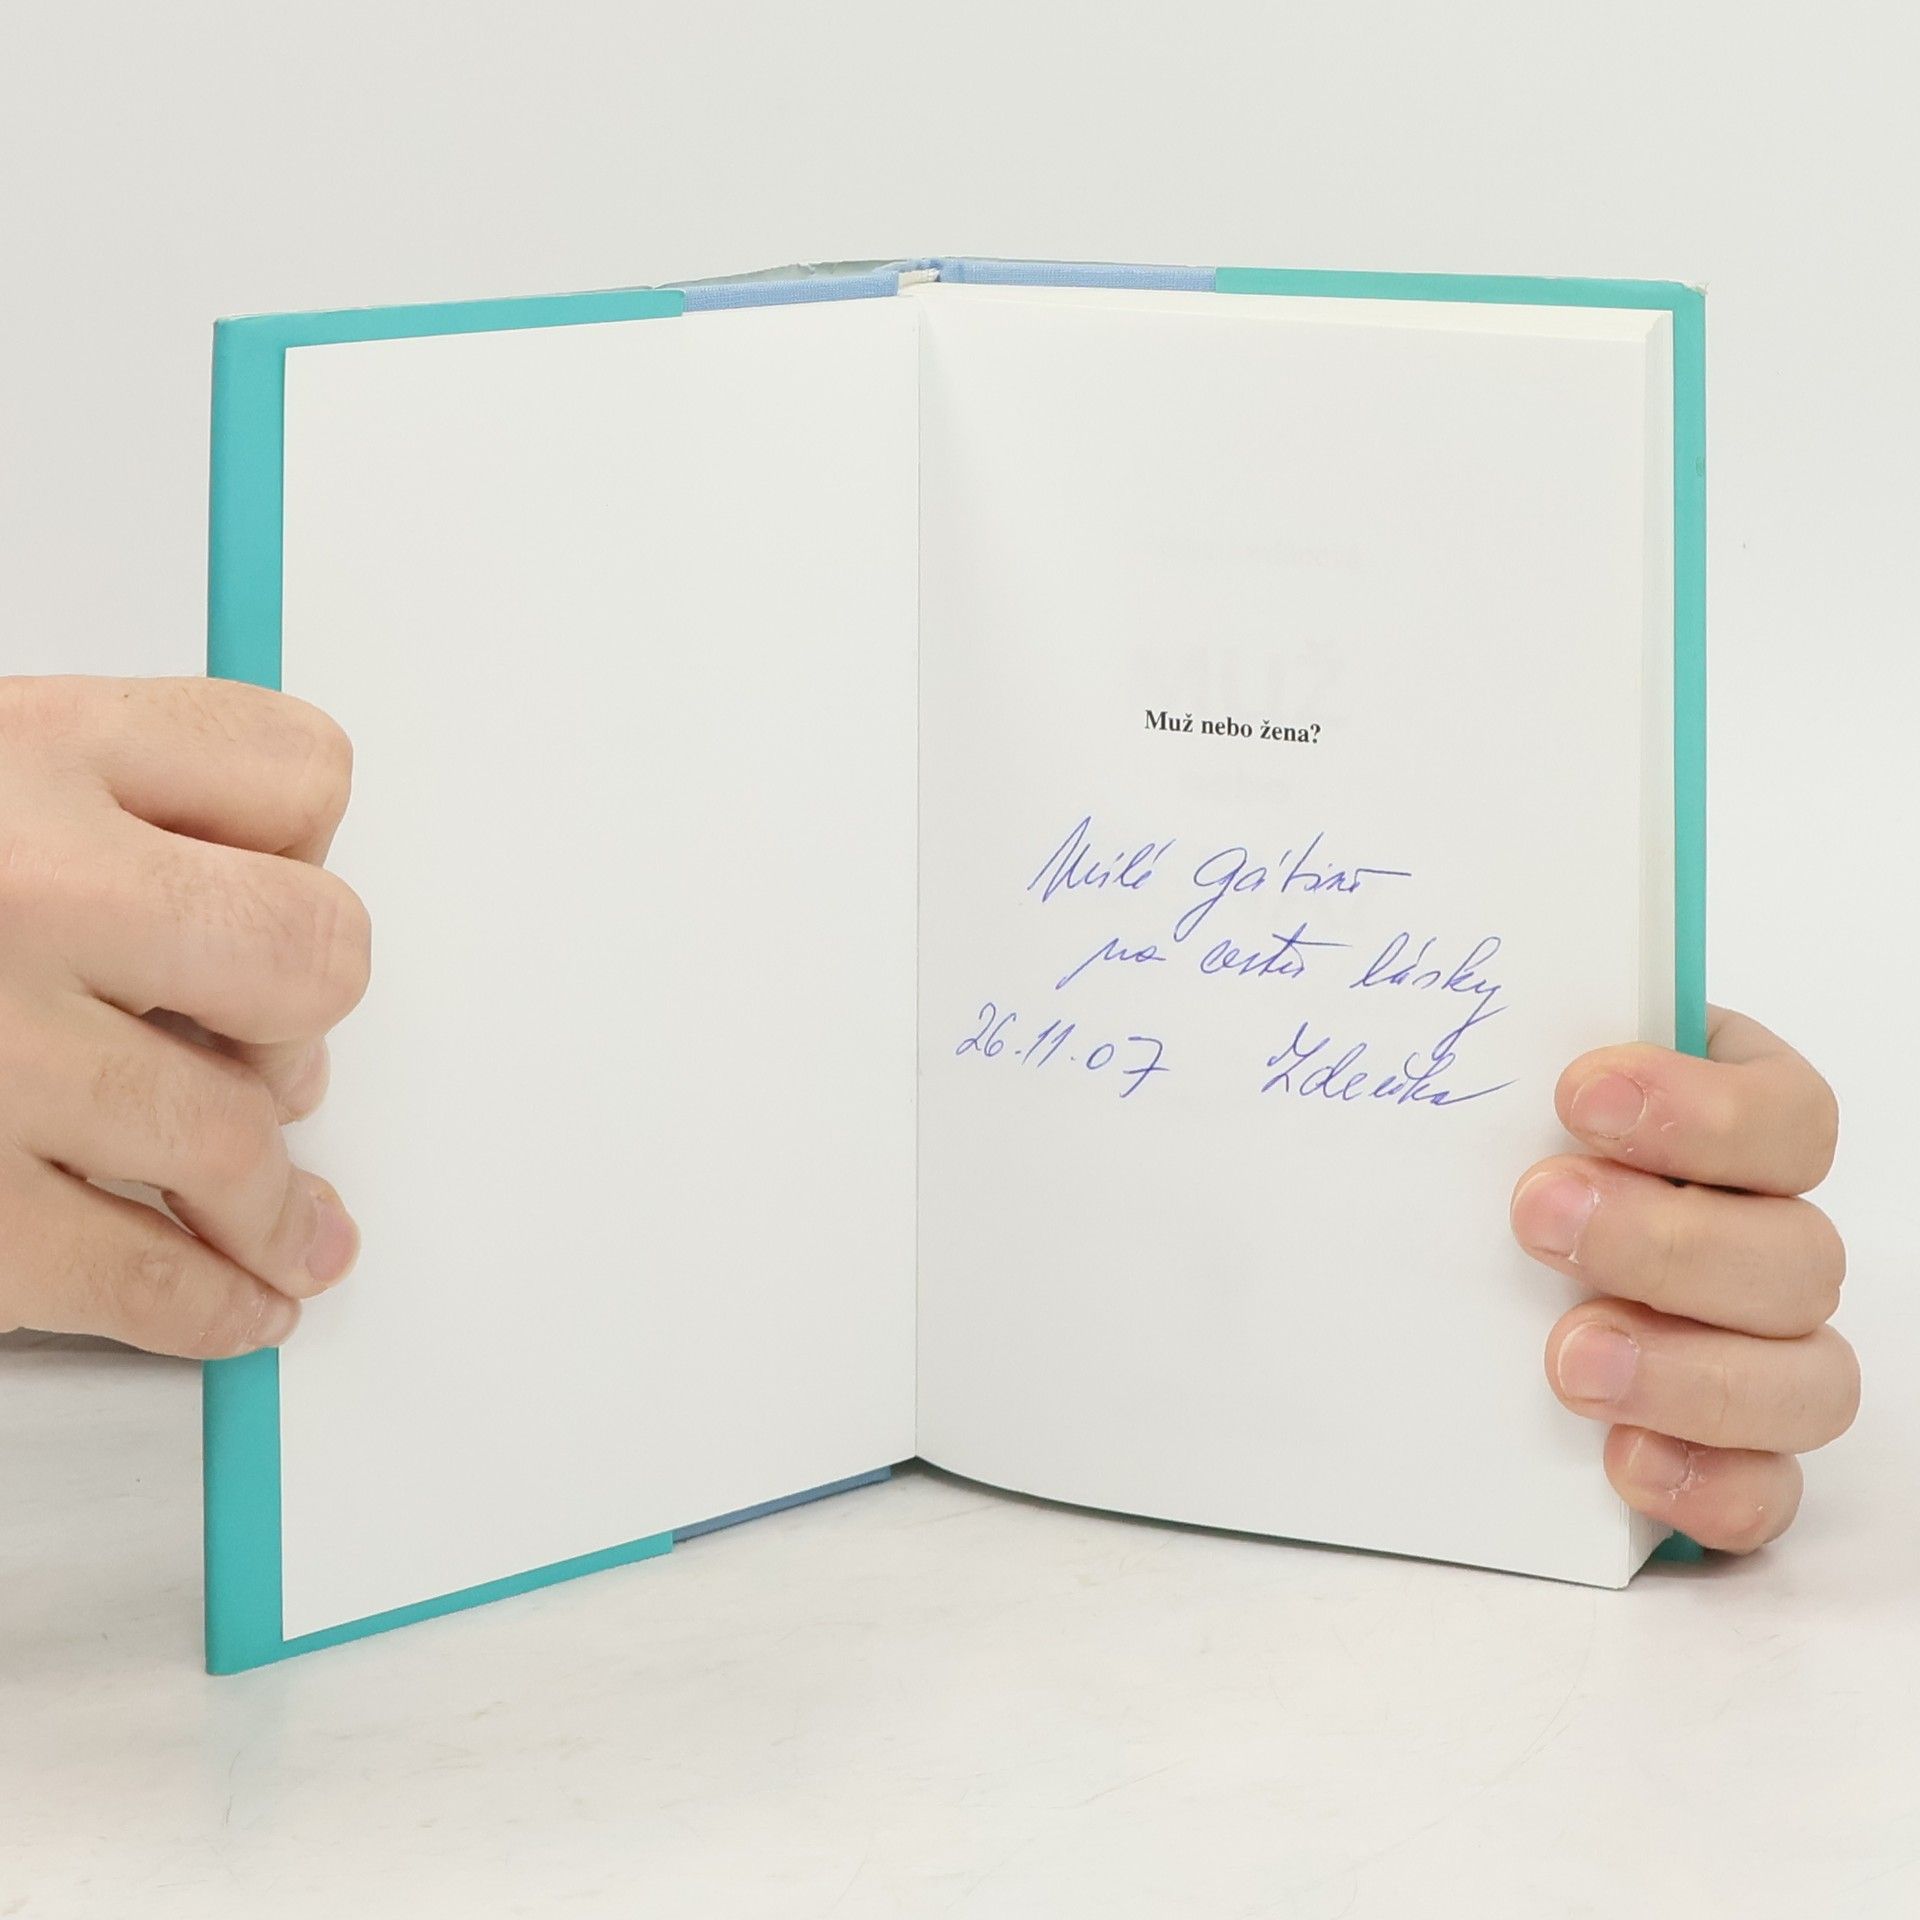 Muž nebo žena?
Milé
na cestu lásky
26.11.07 Zdeňka